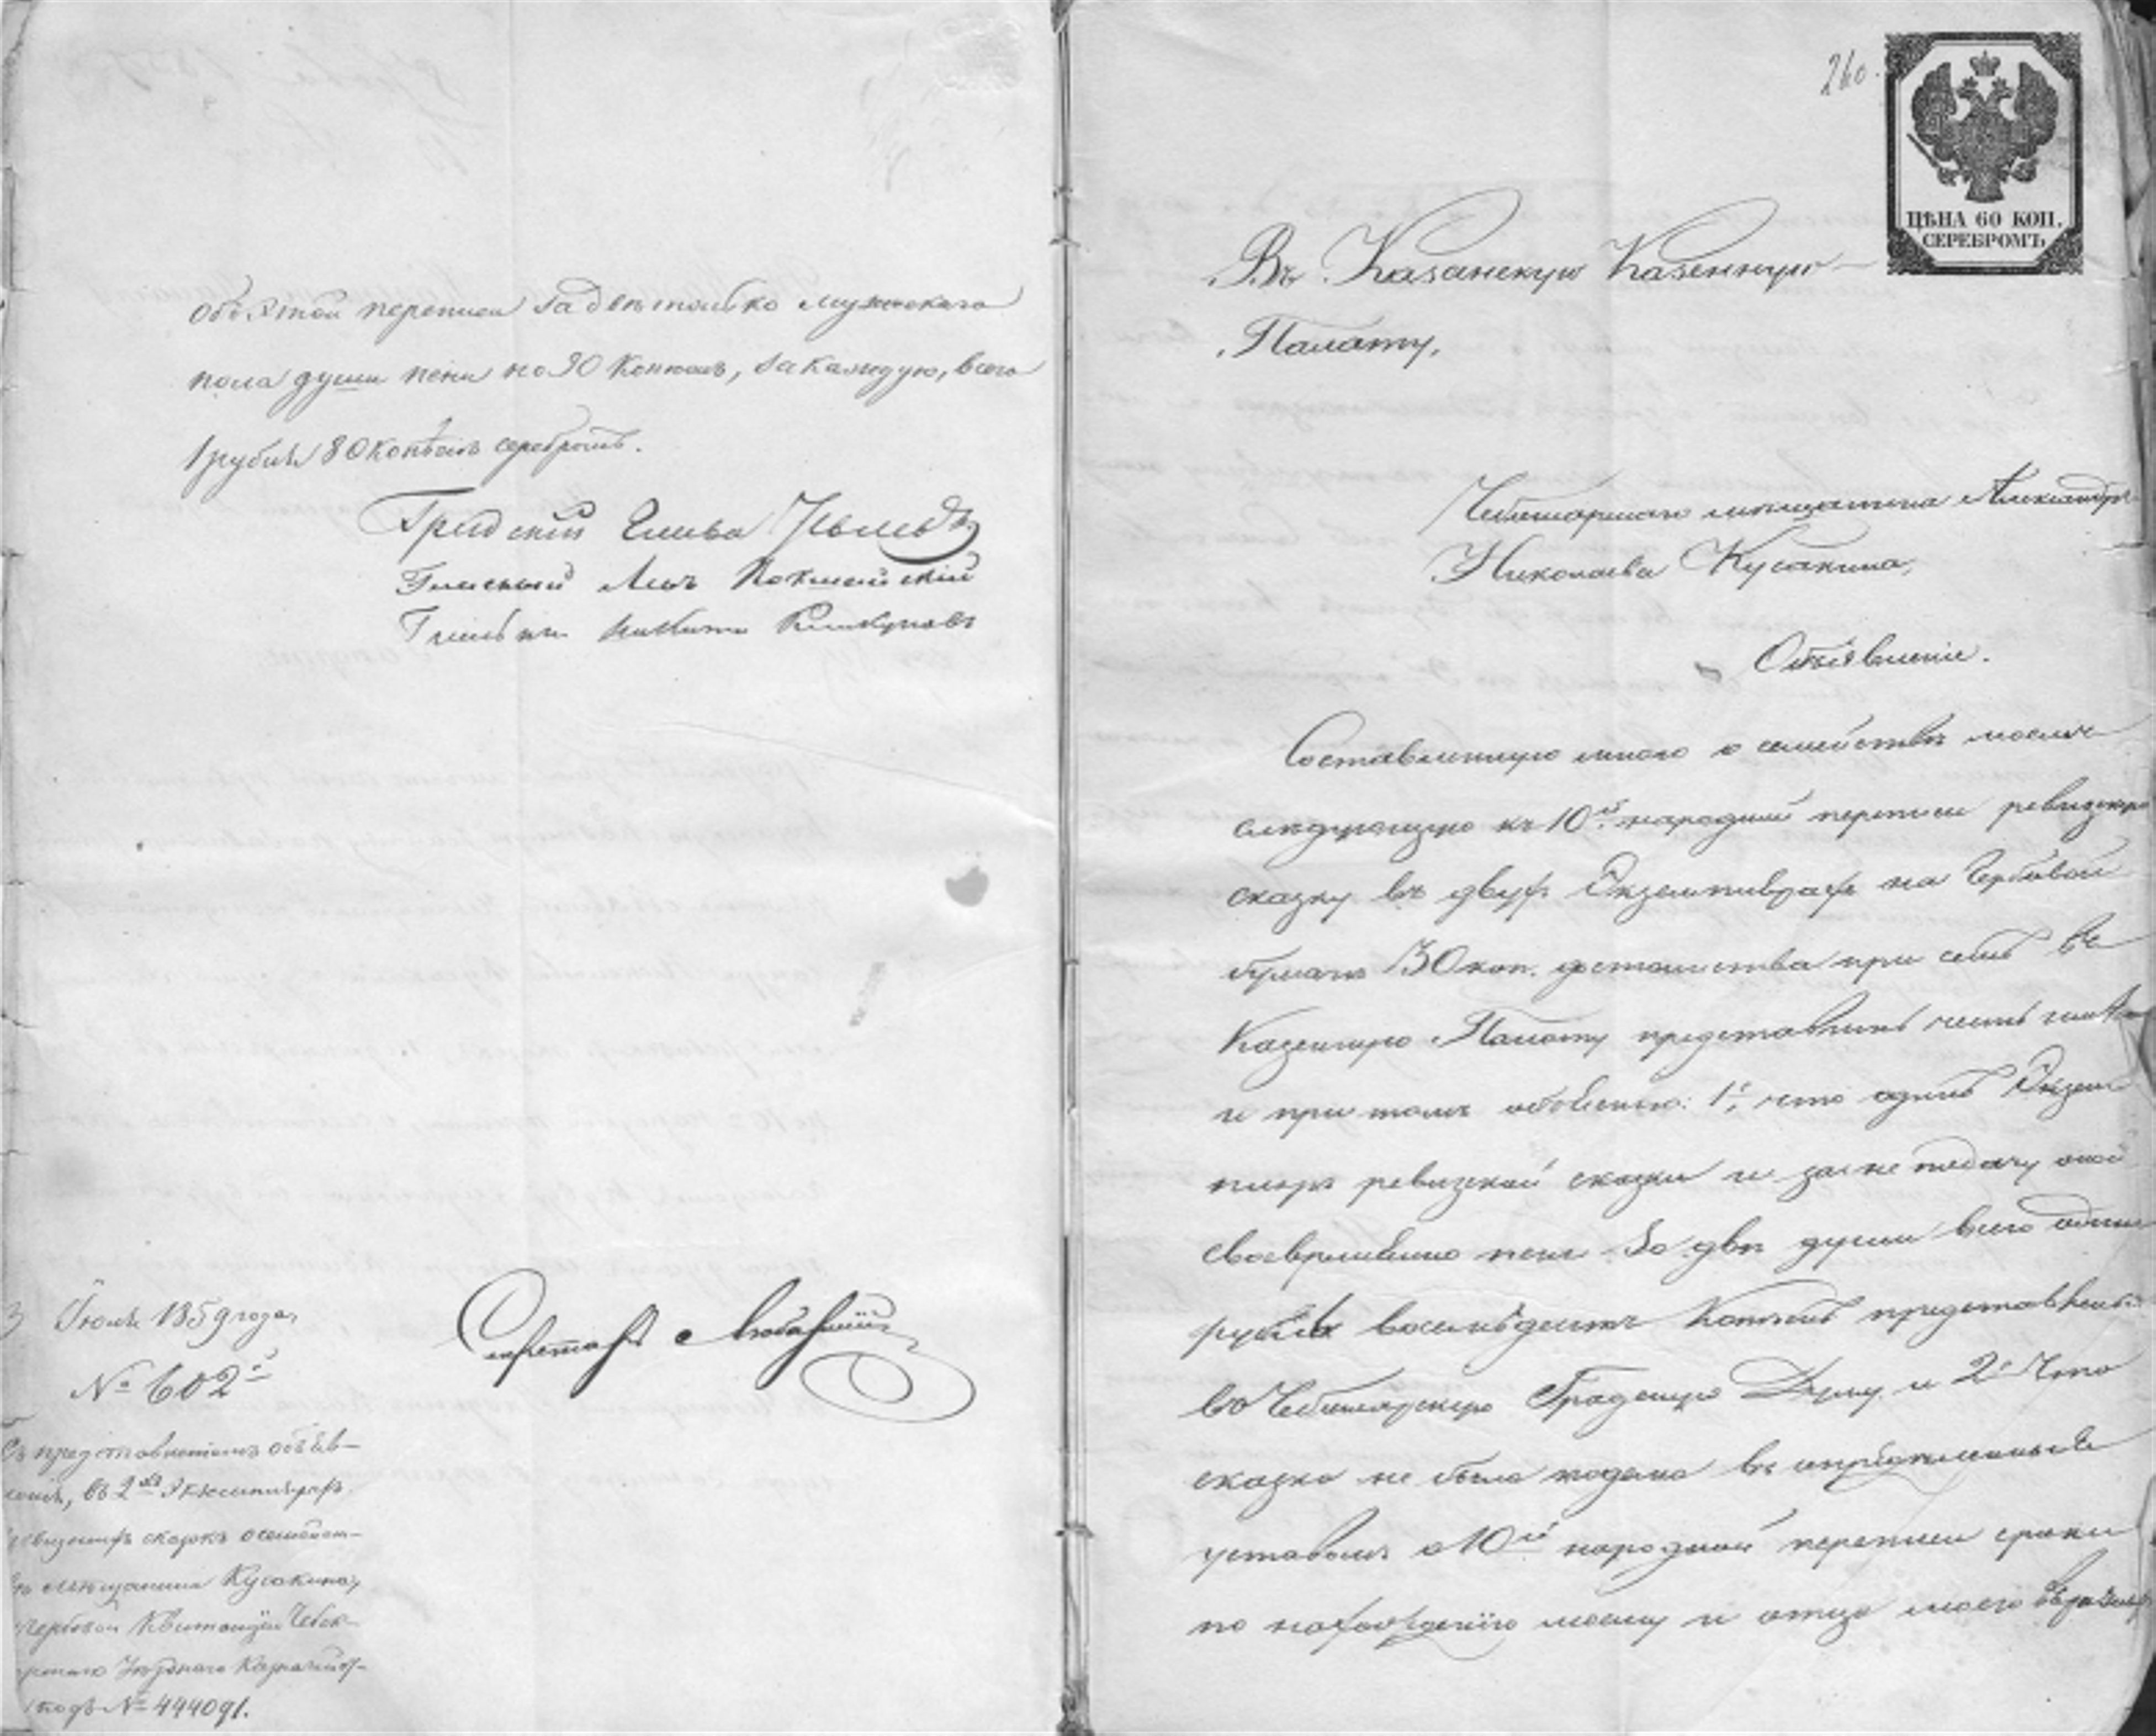 обѣихъ переписи за двѣ только мужескаго
пола души пени по 90 копѣекъ, за каждую, всего
1 рубль 80 копѣекъ серебромъ.
Градскій Глава
Гласный
Гласный Никита
Секретарь
Іюля 1859 года,
№ 602й
Съ представленіемъ объяв-
ленія, въ 2хъ экземплярахъ
ревизскихъ сказокъ о семейст-
вѣ мѣщанина Кусакина,
гербовой квитанціи Чебок-
сарскаго Уѣзднаго Казначейст-
подъ № 444091.
260.
ЦѢНА 60 КОП.
СЕРЕБРОМЪ
Въ Казанскую Казенную
Палату,
Чебоксарскаго мѣщанина Александра
Николаева Кусакина,
Объявленіе.
Составленную мною о семействѣ моемъ
слѣдующую къ 10й народной переписи ревизскую
сказку въ двухъ Экземплярахъ на Гербовой
бумагѣ 30 коп. достоинства при семъ въ
Казенную Палату представить честь имѣю
и при томъ объясняю: 1е, что одинъ Экзем
пляръ ревизской сказки и за не подачу оной
своевременно пени за двѣ души всего одинъ
рубль восемьдесятъ Копѣекъ представлены
въ Чебоксарскую Градскую Думу и 2е Что
сказка не была подана въ опредѣленные
уставомъ о 10й народной переписи сроки
по нахожденію моему и отца моего въ разныхъ